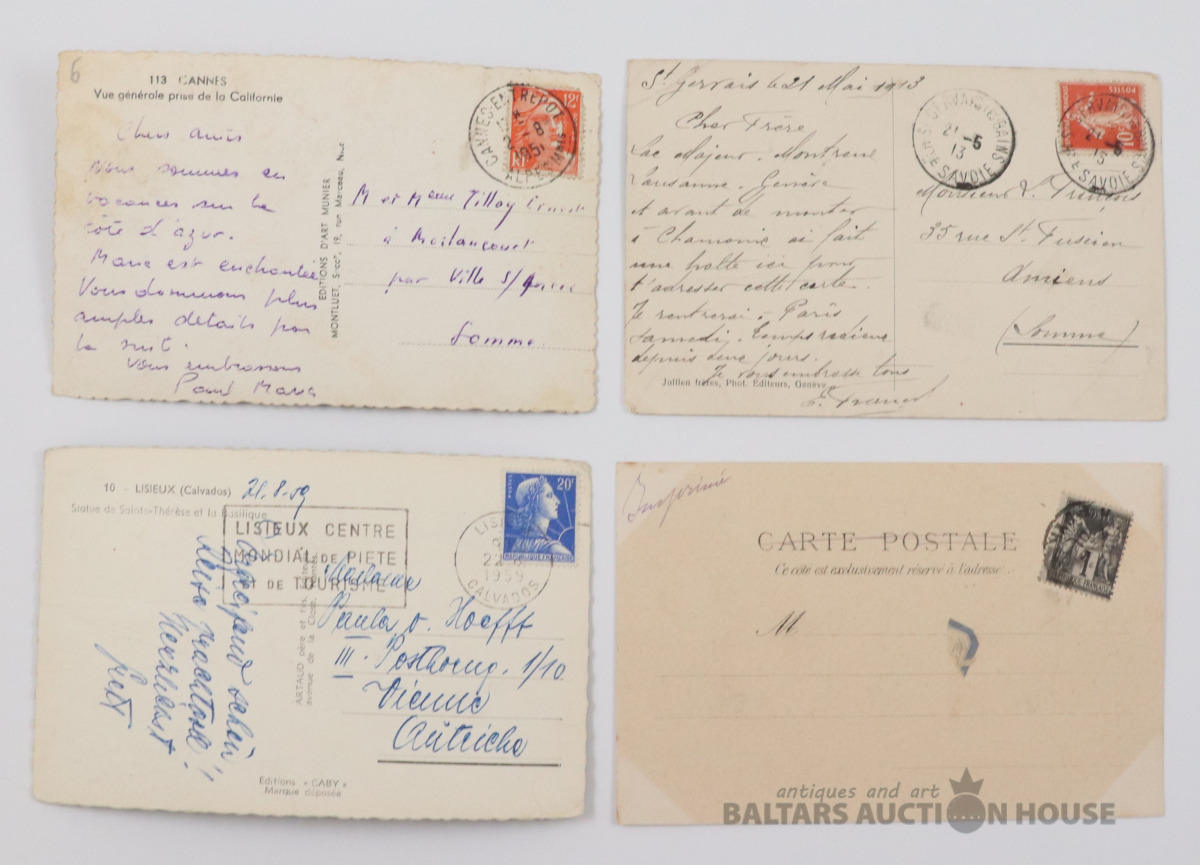 6
113 CANNES
Vue générale prise de la Californie
Chers amis
nous sommes en
vacances sur la
côte d'azur.
Marie est enchantée
Vous donnerons plus
amples détails par
la suit.
Vous embrassons
Paul Maria
EDITIONS D'ART MUNIER
MONTLUET, Succr, 19, rue Marceau, Nice
12F
CANNES-ENTREPOT
8
1951
ALPES MMES
M et Mme Tilloy Ernest
à
par Ville s/
Somme
St Gervais le 21 Mai 1913
Cher Frère
Lac Majeur. Montreux
Lausanne. Genève
et avant de monter
à Chamonix ai fait
une halte ici pour
t'adresser cette carte.
Je rentrerai à Paris
samedi. Temps
depuis deux jours.
Je vous embrasse tous
Jullien frères, Phot. Editeurs, Genève
ST GERVAIS-LES-BAINS
21 -5
13
HTE SAVOIE
POSTES
10
Monsieur L. François
35 rue St. Fuscien
Amiens
(Somme)
10 - LISIEUX (Calvados) 21.8.59
Statue de Sainte-Thérèse et la Basilique
LISIEUX CENTRE
MONDIAL DE PIETE
ET DE TOURISME
LISIEUX
22-8
1959
CALVADOS
POSTES
20F
REPUBLIQUE FRANÇAISE
schön
Herzlichst
Gretl
ARTAUD père et fils, Éditeurs
avenue de la Close, Nantes
Madame
Paula v. Hoefft
III. 1/10
Vienne
Autriche
Editions « GABY »
Marque déposée
Imprimé
CARTE POSTALE
Ce côté est exclusivement réservé à l'adresse.
M
1
REPUBLIQUE FRANÇAISE
antiques and art
BALTARS AUCTION HOUSE